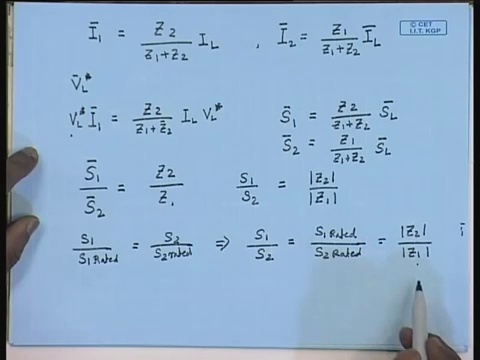 Ī₁ = Z₂/(Z₁+Z₂) I_L , Ī₂ = Z₁/(Z₁+Z₂) Ī_L
© CET
I.I.T. KGP
V̄_L*
V_L* Ī₁ = Z₂/(Z₁+Z₂) I_L V_L*
S̄₁ = Z₂/(Z₁+Z₂) S̄_L
S̄₂ = Z₁/(Z₁+Z₂) S̄_L
S̄₁/S̄₂ = Z₂/Z₁ S₁/S₂ = |Z₂|/|Z₁|
S₁/S₁ Rated = S₂/S₂ rated ⇒ S₁/S₂ = S₁ Rated/S₂ Rated = |Z₂|/|Z₁| i